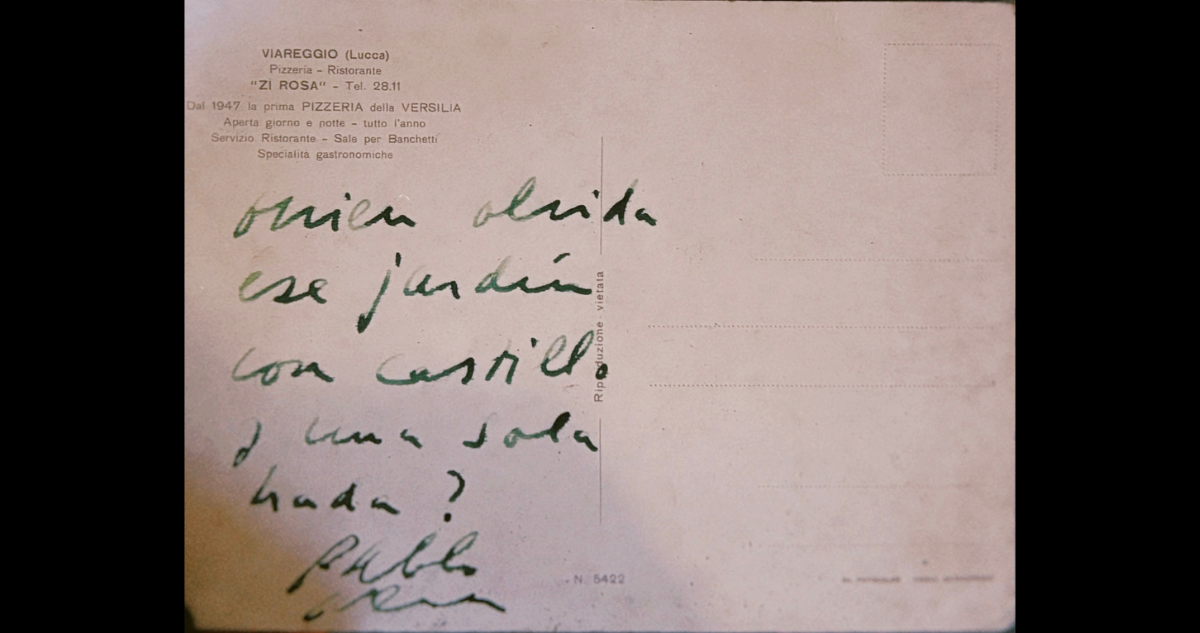 VIAREGGIO (Lucca)
Pizzeria - Ristorante
"ZI ROSA" - Tel. 28.11
Dal 1947 la prima PIZZERIA della VERSILIA
Aperta giorno e notte - tutto l'anno
Servizio Ristorante - Sale per Banchetti
Specialità gastronomiche
quien olvida
ese jardín
con castillo
y una sola
hada?
Pablo
Riproduzione vietata
N. 5422